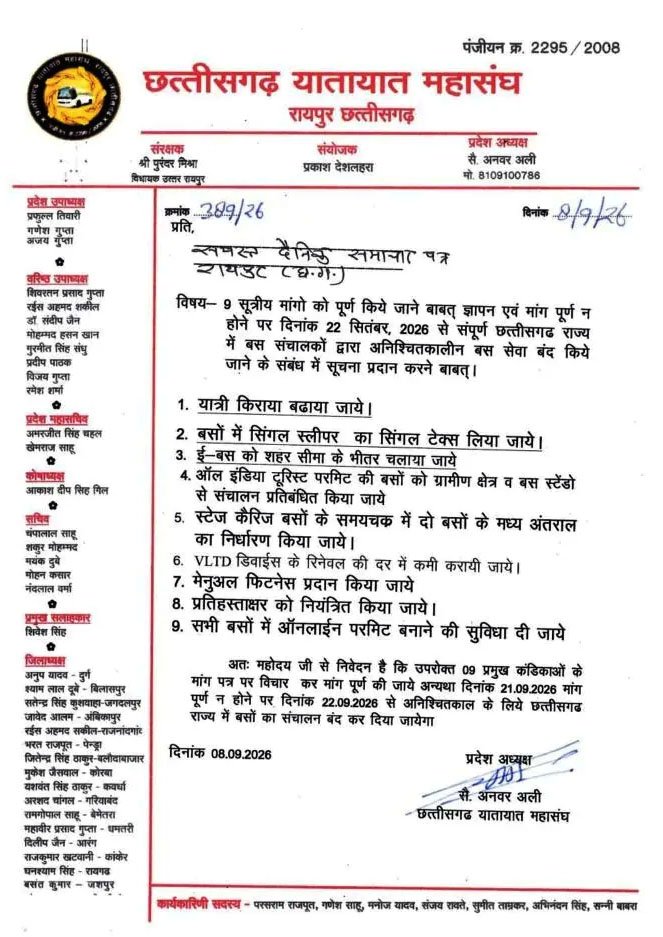 पंजीयन क्र. 2295 / 2008
छत्तीसगढ़ यातायात महासंघ
रायपुर छत्तीसगढ़
संरक्षक
श्री पुरंदर मिश्रा
विधायक उत्तर रायपुर
संयोजक
प्रकाश देशलहरा
प्रदेश अध्यक्ष
सै. अनवर अली
मो. 8109100786
प्रदेश उपाध्यक्ष
प्रफुल्ल तिवारी
गणेश गुप्ता
अजय गुप्ता
वरिष्ठ उपाध्यक्ष
शिवरतन प्रसाद गुप्ता
रईस अहमद शकील
डॉ. संदीप जैन
मोहम्मद हसन खान
गुरमीत सिंह संधु
प्रदीप पाठक
विजय गुप्ता
रमेश शर्मा
प्रदेश महासचिव
अमरजीत सिंह चहल
खेमराज साहू
कोषाध्यक्ष
आकाश दीप सिंह गिल
सचिव
चंपालाल साहू
शकुर मोहम्मद
मयंक दुबे
मोहन कसार
नंदलाल वर्मा
प्रमुख सलाहकार
शिवेश सिंह
जिलाध्यक्ष
अनुप यादव - दुर्ग
श्याम लाल दूबे - बिलासपुर
सतेन्द्र सिंह कुशवाहा-जगदलपुर
जावेद आलम - अंबिकापुर
रईस अहमद सकील-राजनांदगांव
भरत राजपूत - पेन्ड्रा
जितेन्द्र सिंह ठाकुर-बलौदाबाजार
मुकेश जैसवाल - कोरबा
यशवंत सिंह ठाकुर - कवर्धा
अरशद चांगल - गरियाबंद
रामगोपाल साहू - बेमेतरा
महावीर प्रसाद गुप्ता - धमतरी
दिलीप जैन - आरंग
राजकुमार खटवानी - कांकेर
घनश्याम सिंह - रायगढ
बसंत कुमार - जशपुर
क्रमांक 389/26
दिनांक 8/9/26
प्रति,
समस्त दैनिक समाचार पत्र
रायपुर (छ.ग.)
विषय– 9 सूत्रीय मांगो को पूर्ण किये जाने बाबत् ज्ञापन एवं मांग पूर्ण न
होने पर दिनांक 22 सितंबर, 2026 से संपूर्ण छत्तीसगढ राज्य
में बस संचालकों द्वारा अनिश्चितकालीन बस सेवा बंद किये
जाने के संबंध में सूचना प्रदान करने बाबत्।
1. यात्री किराया बढाया जाये।
2. बसों में सिंगल स्लीपर का सिंगल टेक्स लिया जाये।
3. ई–बस को शहर सीमा के भीतर चलाया जाये
4. ऑल इंडिया टूरिस्ट परमिट की बसों को ग्रामीण क्षेत्र व बस स्टेंडो
से संचालन प्रतिबंधित किया जाये
5. स्टेज कैरिज बसों के समयचक्र में दो बसों के मध्य अंतराल
का निर्धारण किया जाये।
6. VLTD डिवाईस के रिनेवल की दर में कमी करायी जाये।
7. मेनुअल फिटनेस प्रदान किया जाये
8. प्रतिहस्ताक्षर को नियंत्रित किया जाये।
9. सभी बसों में ऑनलाईन परमिट बनाने की सुविधा दी जाये
अतः महोदय जी से निवेदन है कि उपरोक्त 09 प्रमुख कंडिकाओं के
मांग पत्र पर विचार कर मांग पूर्ण की जाये अन्यथा दिनांक 21.09.2026 मांग
पूर्ण न होने पर दिनांक 22.09.2026 से अनिश्चितकाल के लिये छत्तीसगढ
राज्य में बसों का संचालन बंद कर दिया जायेगा
दिनांक 08.09.2026
प्रदेश अध्यक्ष
सै. अनवर अली
छत्तीसगढ यातायात महासंघ
कार्यकारिणी सदस्य - परसराम राजपूत, गणेश साहू, मनोज यादव, संजय रावते, सुमीत ताम्रकर, अभिनंदन सिंह, सन्नी बाबरा